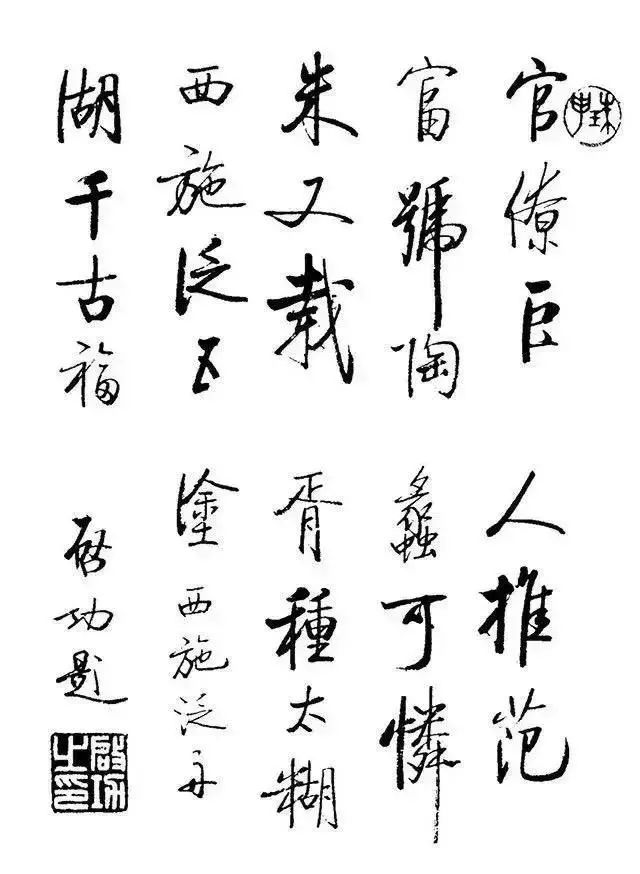 珠申
官僚巨
富號陶
朱又載
西施泛五
湖千古福
人推范
蠡可憐
胥種太糊
塗 西施泛舟
啓功題
啟功之印